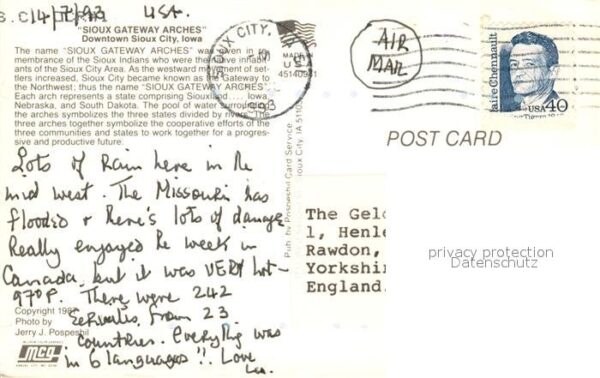 14/7/93 USA.
"SIOUX GATEWAY ARCHES"
Downtown Sioux City, Iowa
The name "SIOUX GATEWAY ARCHES" was given in
membrance of the Sioux Indians who were the native inhabit-
ants of the Sioux City Area. As the westward movement of set-
tlers increased, Sioux City became known as the Gateway to
the Northwest; thus the name "SIOUX GATEWAY ARCHES".
Each arch represents a state comprising Siouxland . . . . Iowa,
Nebraska, and South Dakota. The pool of water
the arches symbolizes the three states divided by rivers. The
three arches together symbolize the cooperative efforts of the
three communities and states to work together for a progres-
sive and productive future.
Lots of rain here in the
mid west. The Missouri has
flooded & there's lots of damage
Really enjoyed the week in
Canada, but it was VERY hot-
97°F. There were 242
from 23
countries. Everything was
in 6 languages!! Love
Copyright 198
Photo by
Jerry J. Pospeshil
SIOUX CITY,
1993
MADE IN
USA
AIR
MAIL
USA 40
POST CARD
Pub. by Pospeshil Card Service
Sioux City, IA 5110
The Geld
1, Henle
Rawdon,
Yorkshir
England.
privacy protection
Datenschutz